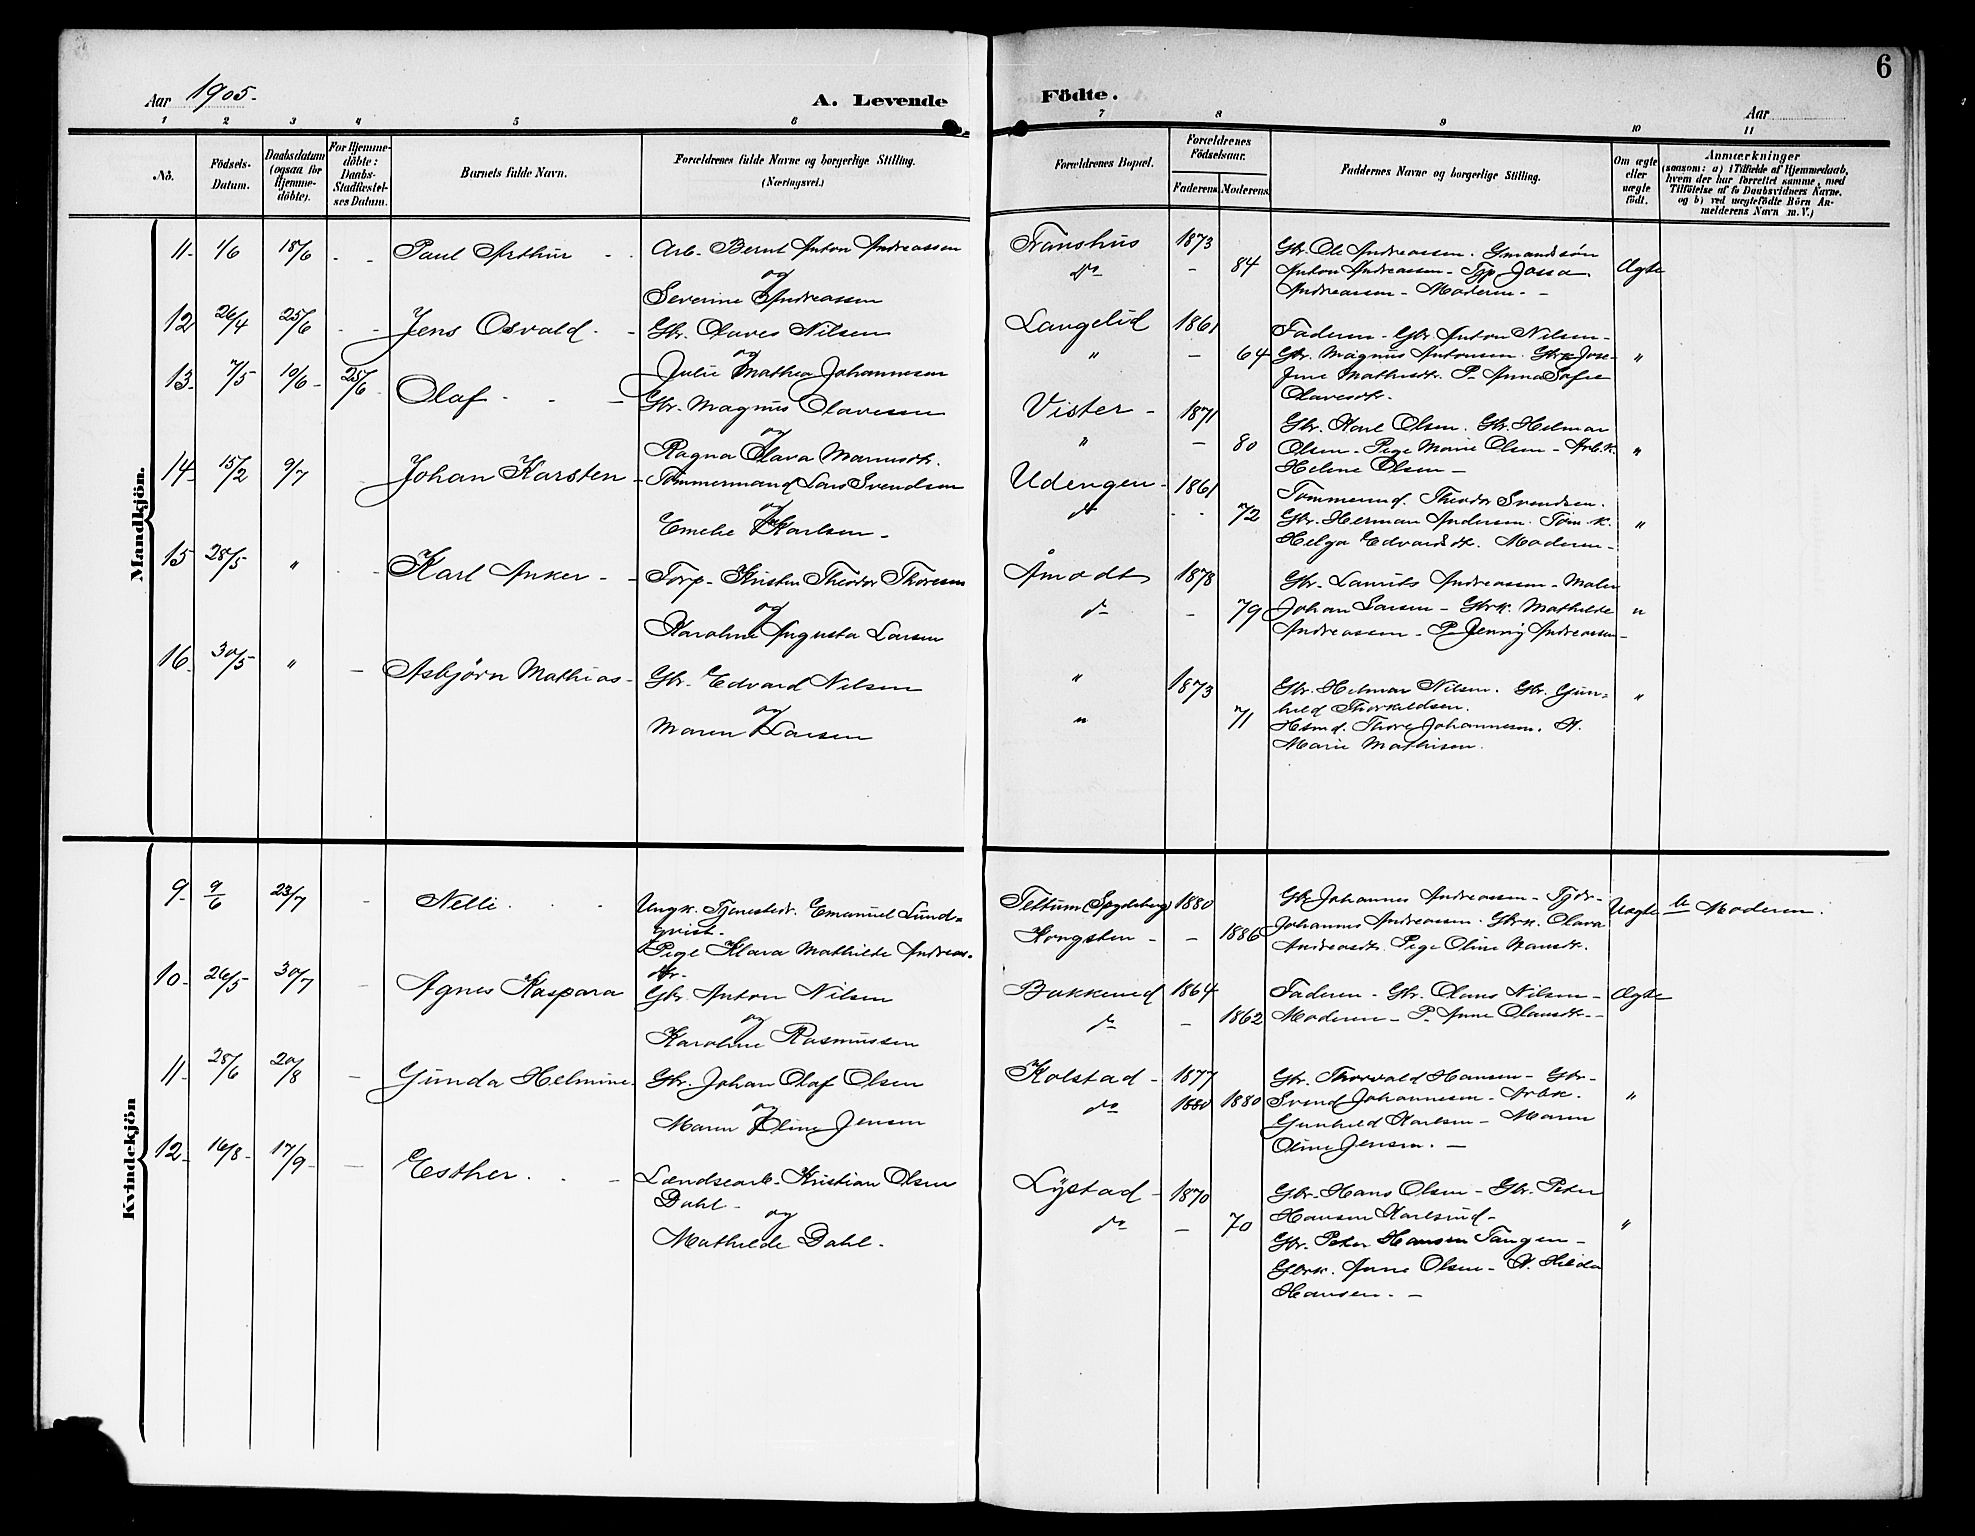 6
Aar 1905.
A. Levende
Födte.
Aar
1 2 3 4 5 6
7 8 9 10 11
Nô.
Födsels-
Datum.
Daabsdatum
(ogsaa for
Hjemme-
döbte).
For Hjemme-
döbte:
Daabs-
Stadfæstel-
ses Datum.
Barnets fulde Navn.
Forældrenes fulde Navne og borgerlige Stilling.
(Næringsvei.)
Forældrenes Bopæl.
Forældrenes
Födselsaar.
Faderens.
Moderens.
Faddernes Navne og borgerlige Stilling.
Om ægte
eller
uægte
födt.
Anmærkninger
(saasom: a) i Tilfælde af Hjemmedaab,
hvem der har forrettet samme, med
Tilföielse af to Daabsvidners Navne.
og b) ved uægtefödte Börn An-
melderens Navn m. V.)
Mandkjön.
11. 1/6 18/6 - - Paul Arthur - - Arb. Bernt Anton Andreassen
og
Severine Andreassen
Franshus 1873
do - 84
Gbr. Ole Andreassen. Gmandsøn
Anton Andreassen - Tjp Jossa
Andreassen - Moderen. -
Ægte
12 26/4 25/6 - - Jens Osvald. - Gbr. Olaves Nilsen
og
Julie Mathea Johannesen
Langelid 1861
" - 64
Faderen - Gbr Anton Nilsen -
Gbr. Magnus Antonsen. Gbrk Jose-
fine Mathisdtr. P. Anna Sofie
Olavesdtr.
"
13. 7/5 10/6 - 25/6 - Olaf - - - Gbr. Magnus Olavesen
og
Ragna Olava Mariusdtr.
Vister - 1871
" - 80
Gbr. Karl Olsen. Gbr. Helmar
Olsen - Pige Marie Olsen - Arb.k.
Helene Olsen -
"
14 15/2 9/7 - Johan Karsten - Tömmermand Lars Svendsen
og
Emelie Karlsen -
Udengen - 1861
do - - 72
Tömmermd. Theodor Svendsen.
Gbr. Herman Andersen. Töm.k.
Helga Edvardsdtr. Moderen -
"
15 28/5 " - - Karl Anker - - Torp - Kristen Theodor Thoresen
og
Karoline Augusta Larsen
Åmodt 1878
do - 79
Gbr. Laurits Andreassen - Maler
Johan Larsen - Gbrk. Mathilde
Andreassen - P. Jenny Andreassen -
"
16. 30/5 - " - Asbjørn Mathias - Gbr. Edvard Nilsen
og
Maren Larsen
" 1873
" 71
Gbr. Helmar Nilsen. Gbr. Gun-
hild Thorkildsen.
Hsmd. Thore Johannesen. P.
Marie Mathisen.
"
Kvindekjön
9. 9/6 23/7 - Nelli. - - Ungk. Tjenestedr. Emanuel Lund-
qvist.
Pige Klara Mathilde Andreas-
dtr.
Tettum (Spydeberg) 1880
Kongsten - - 1886
Gbr. Johannes Andreassen - Tjdr -
Johannes Andreassen. Gbrk. Olava
Andreasdtr. Pige Oline Hansdtr.
Uægte b. Moderen.
10. 26/5 30/7 - Agnes Kaspara Gbr. Anton Nilsen
og
Karoline Rasmussen
Bakkerud 1864
do - 1862
Faderen - Gbr. Olaus Nilsen -
Moderen - P. Anne Olausdtr. -
Ægte
11. 28/6 20/8 - Gunda Helmine. Gbr. Johan Olaf Olsen
og
Maren Oline Jensen
Kolstad - 1877
do 1880 1880
Gbr. Thorvald Hansen - Gbr -
Svend Johannesen - Arbk.
Gunhild Karlsen - Maren
Oline Jensen. -
"
12. 16/8 - 17/9 - - Esther. - - Lændsearb. Kristian Olsen
Dahl -
og
Mathilde Dahl -
Lystad - 1870
do - 70
Gbr. Hans Olsen - Gbr. Peter
Hansen Karlsrud -
Gbr. Peter Hansen Tangen -
Gbrk. Anne Olsen - P. Hilda
Hansen. -
"